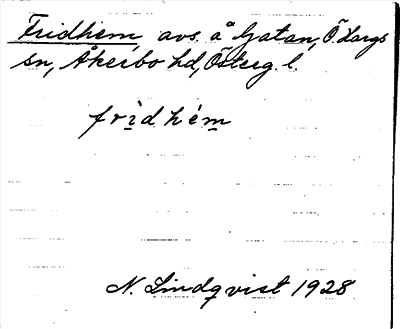 Fridhem, avs. å Gatan, Ö. Skrgs
sn, Åkerbo hd, Österg. l.
frìdhém
N. Lindqvist 1928